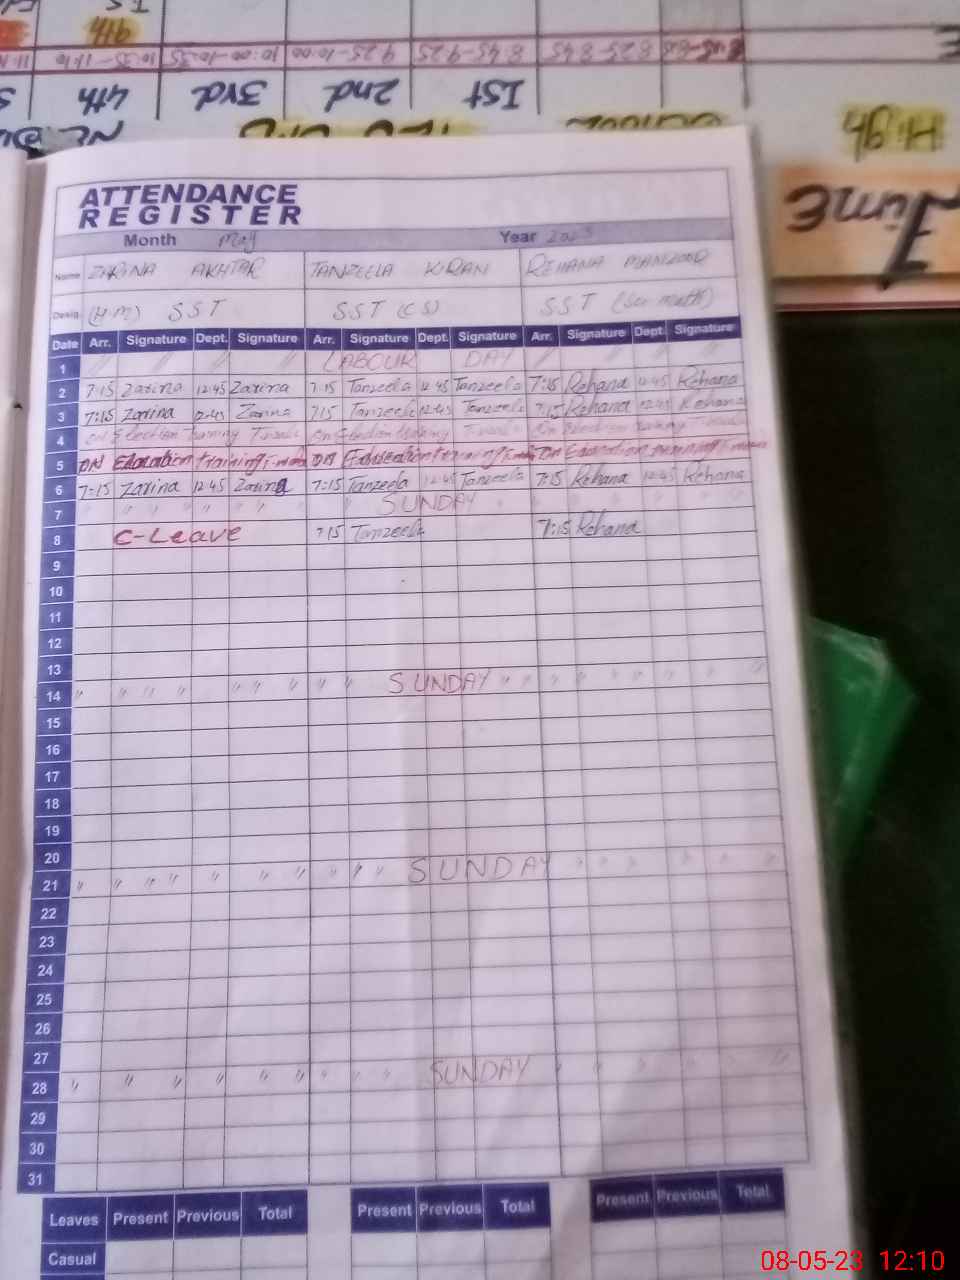 4th 3rd 2nd 1st
10:35-11:10 10:00-10:35 9.25-10:00 8:45-9.25 8.25-8.45
High
Time
ATTENDANCE
REGISTER
Month May Year 2023
Name ZARINA AKHTAR TANZEELA KIRAN REHANA MANZOOR
Desig. (H.M) SST SST (CS) SST (Sci math)
Date Arr. Signature Dept. Signature Arr. Signature Dept. Signature Arr. Signature Dept. Signature
1 " " " " LABOUR DAY " " " "
2 7:15 Zarina 12:45 Zarina 7:15 Tanzeela 12:45 Tanzeela 7:15 Rehana 12:45 Rehana
3 7:15 Zarina 12:45 Zarina 7:15 Tanzeela 12:45 Tanzeela 7:15 Rehana 12:45 Rehana
4 On Election training On Election training On Election training
5 ON training ON training ON training
6 7:15 Zarina 12:45 Zarina 7:15 Tanzeela 12:45 Tanzeela 7:15 Rehana 12:45 Rehana
7 " " " " " " SUNDAY " " " " "
8 C-Leave 7:15 Tanzeela 7:15 Rehana
9
10
11
12
13
14 " " " " " " " " " SUNDAY " " " " " " "
15
16
17
18
19
20
21 " " " " " " " " " SUNDAY " " " " " "
22
23
24
25
26
27
28 " " " " " " " " " SUNDAY " " " " "
29
30
31
Leaves Present Previous Total Present Previous Total Present Previous Total
Casual
08-05-23 12:10